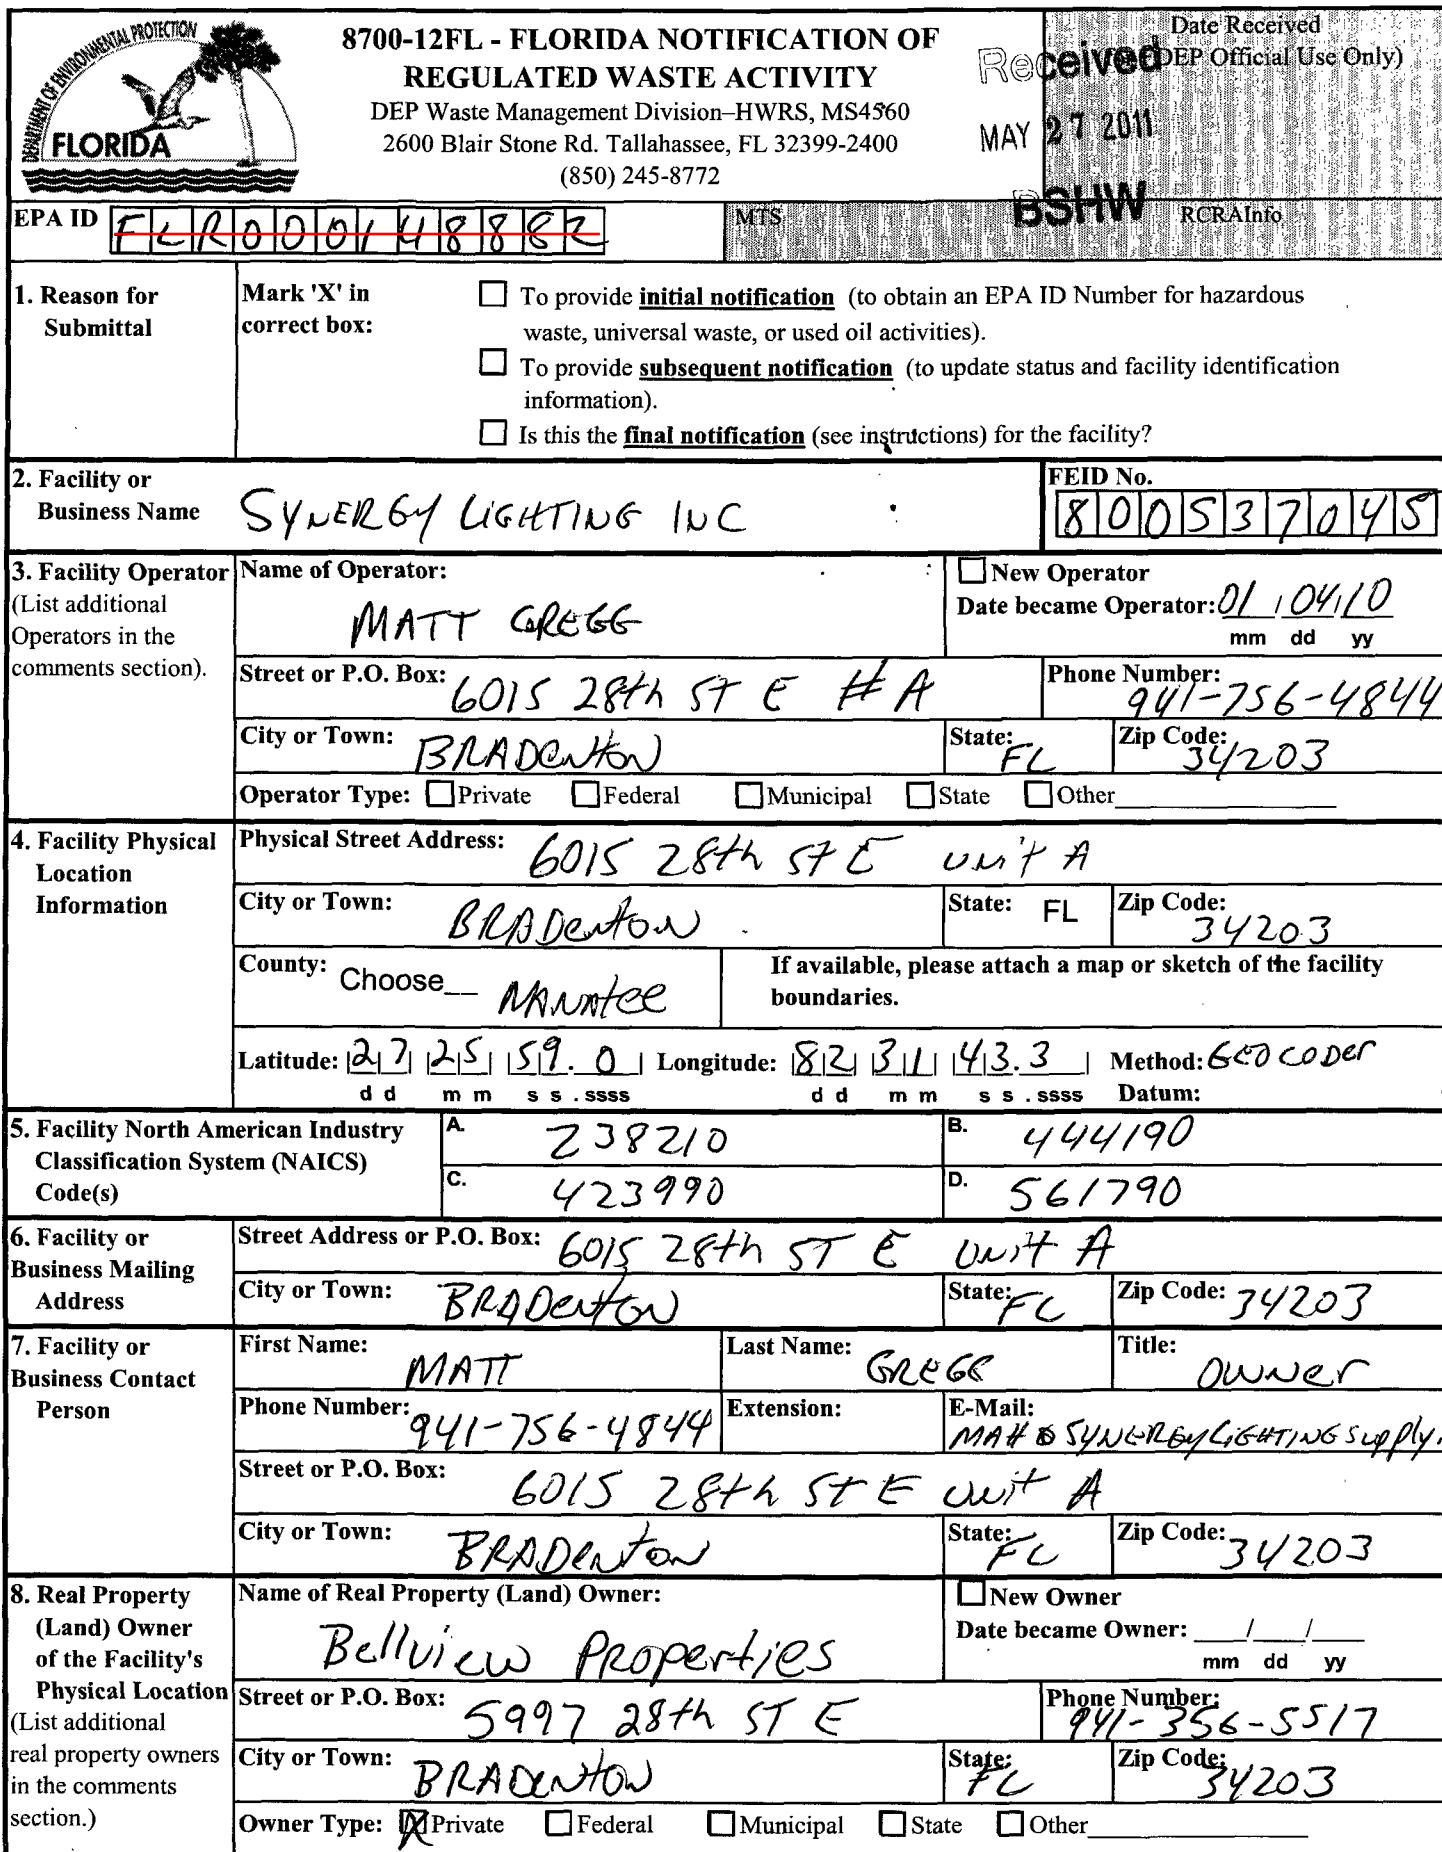 DEPARTMENT OF ENVIRONMENTAL PROTECTION
FLORIDA
8700-12FL - FLORIDA NOTIFICATION OF
REGULATED WASTE ACTIVITY
DEP Waste Management Division–HWRS, MS4560
2600 Blair Stone Rd. Tallahassee, FL 32399-2400
(850) 245-8772
Date Received
(DEP Official Use Only)
Received
MAY 27 2011
BSHW
EPA ID FLR000148882
MTS RCRAInfo
1. Reason for Submittal
Mark 'X' in correct box:
To provide initial notification (to obtain an EPA ID Number for hazardous
waste, universal waste, or used oil activities).
To provide subsequent notification (to update status and facility identification
information).
Is this the final notification (see instructions) for the facility?
2. Facility or
Business Name SYNERGY LIGHTING INC
FEID No.
800537045
3. Facility Operator
(List additional
Operators in the
comments section).
Name of Operator:
MATT GREGG
New Operator
Date became Operator: 01/04/10
mm dd yy
Street or P.O. Box: 6015 28th ST E # A
Phone Number:
941-756-4844
City or Town: BRADENTON
State: FL
Zip Code: 34203
Operator Type: Private Federal Municipal State Other
4. Facility Physical
Location
Information
Physical Street Address: 6015 28th ST E unit A
City or Town: BRADENTON
State: FL
Zip Code: 34203
County: Choose__ MANATEE
If available, please attach a map or sketch of the facility
boundaries.
Latitude: 27 25 59.0 Longitude: 82 31 43.3 Method: GEOCODER
d d m m s s . ssss d d m m s s . ssss Datum:
5. Facility North American Industry
Classification System (NAICS)
Code(s)
A. 238210
B. 444190
C. 423990
D. 561790
6. Facility or
Business Mailing
Address
Street Address or P.O. Box: 6015 28th ST E UNIT A
City or Town: BRADENTON
State: FL
Zip Code: 34203
7. Facility or
Business Contact
Person
First Name: MATT
Last Name: GREGG
Title: OWNER
Phone Number: 941-756-4844
Extension:
E-Mail:
MATT@SYNERGYLIGHTINGSUPPLY.
Street or P.O. Box: 6015 28th ST E unit A
City or Town: BRADENTON
State: FL
Zip Code: 34203
8. Real Property
(Land) Owner
of the Facility's
Physical Location
(List additional
real property owners
in the comments
section.)
Name of Real Property (Land) Owner:
Bellview Properties
New Owner
Date became Owner: ___/___/___
mm dd yy
Street or P.O. Box: 5997 28th ST E
Phone Number:
941-356-5517
City or Town: BRADENTON
State: FL
Zip Code: 34203
Owner Type: X Private Federal Municipal State Other